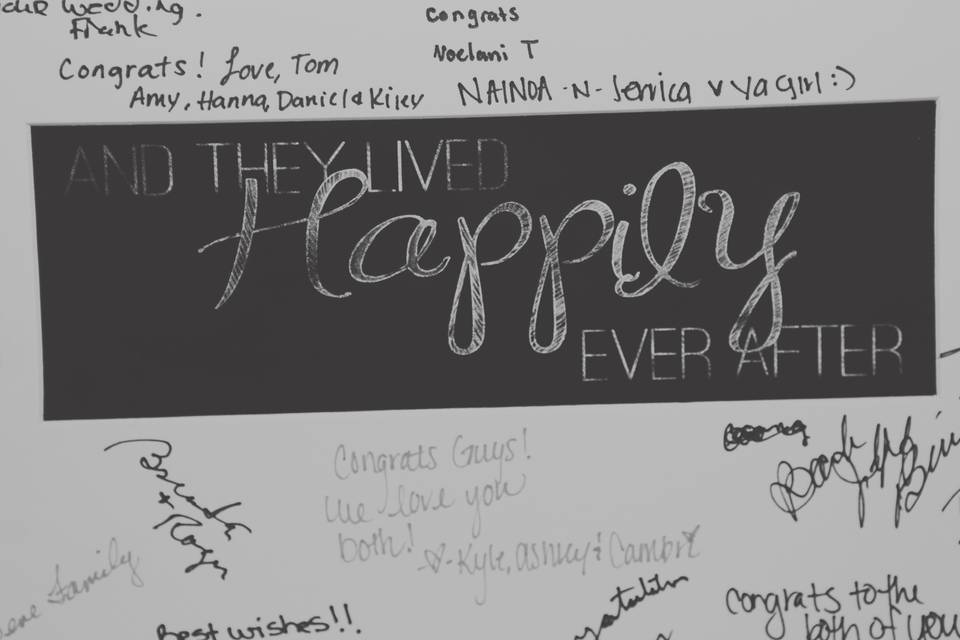 wedding.
Frank
Congrats
Noelani T
Congrats! Love, Tom
Amy, Hanna, Daniel & Kiley
NAINOA -N- Jerrica ya girl :)
AND THEY LIVED
Happily
EVER AFTER
Brenda
+ Roger
Congrats Guys!
We love you
both!
-Kyle, Ashley & Cambri
Family
Best wishes!!
Congrats to the
both of you